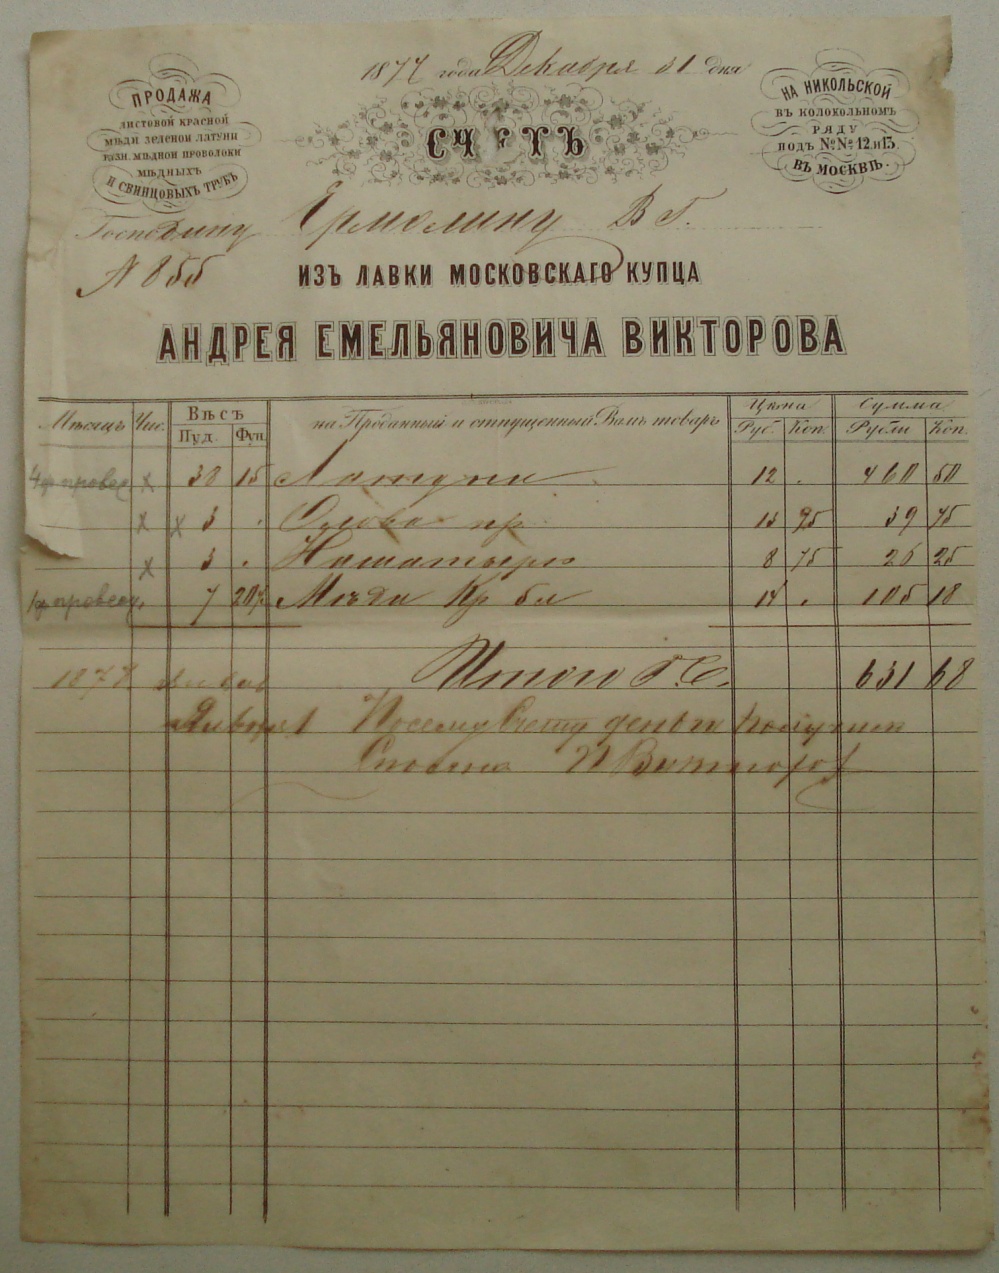 1877 года Декабря 31 дня
ПРОДАЖА
ЛИСТОВОЙ КРАСНОЙ
МѢДИ ЗЕЛЕНОЙ ЛАТУНИ
РАЗН. МѢДНОЙ ПРОВОЛОКИ
МѢДНЫХЪ
И СВИНЦОВЫХЪ ТРУБЪ
СЧЕТЪ
НА НИКОЛЬСКОЙ
ВЪ КОЛОКОЛЬНОМЪ
РЯДУ
ПОДЪ №№ 12 и 13.
ВЪ МОСКВѢ.
Господину Ермолину В Г.
N 855
ИЗЪ ЛАВКИ МОСКОВСКАГО КУПЦА
АНДРЕЯ ЕМЕЛЬЯНОВИЧА ВИКТОРОВА
Мѣсяцъ Чис. Вѣсъ на Проданный и отпущенный Вамъ товаръ Цѣна Сумма
Пуд. Фун. Руб. Коп. Рубли Коп.
х 15 Латуни 12 . 460 50
х х 3 . Олова пр 13 25 39 75
х 3 . Нашатырь 8 75 26 25
7 Мѣди Кр бл 14 . 105 18
Итого Р.С. 631 68
Января 1 По сему Счету деньги получил
Сполна Викторов